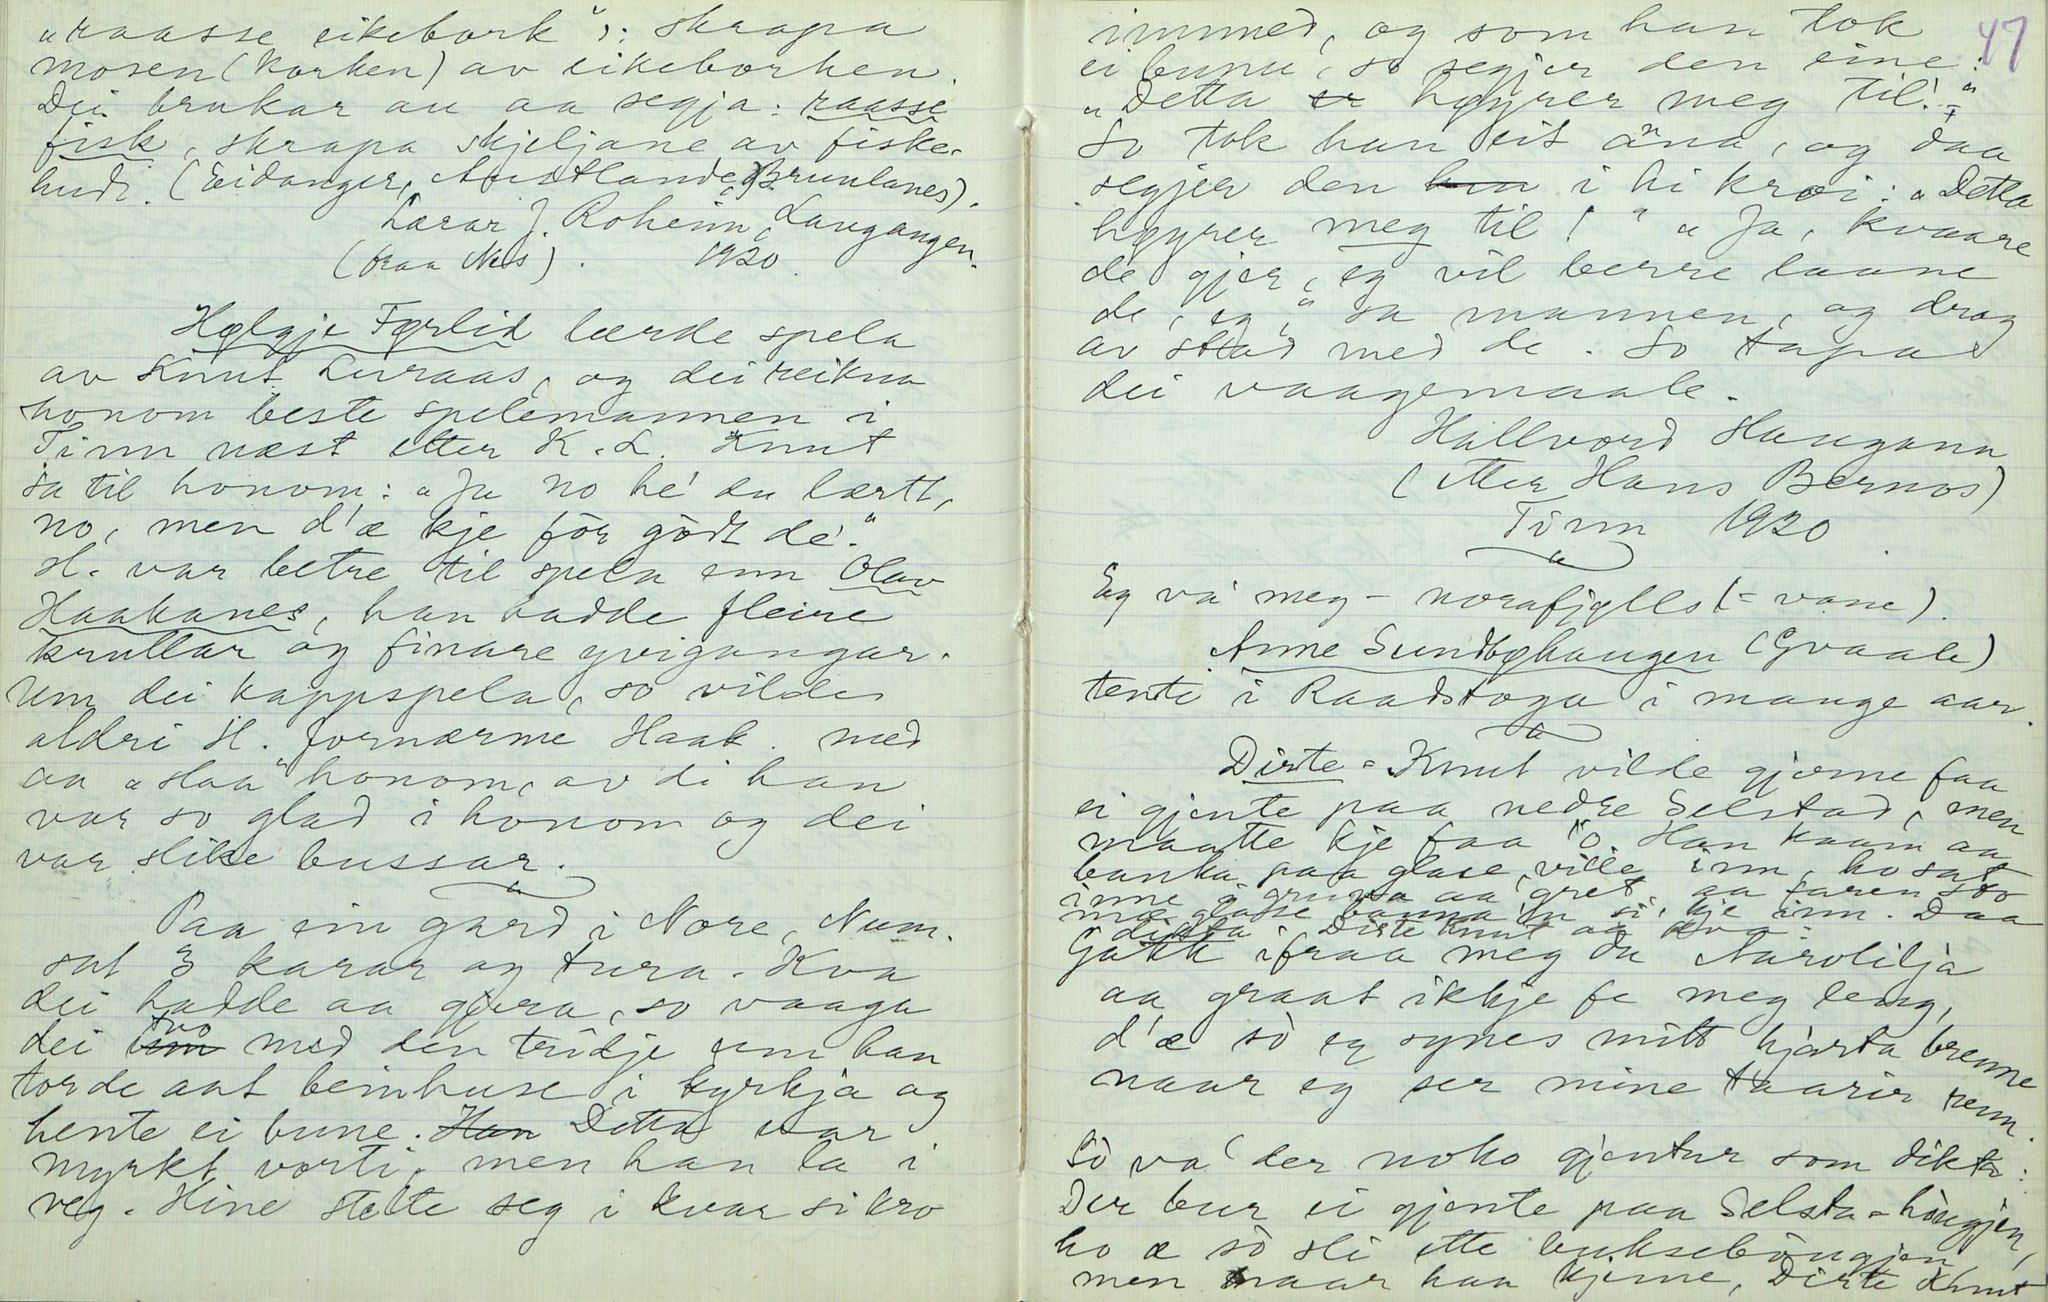 „raasse eikebork": skrapa
mosen (korken) av eikeborken.
Dei brukar au aa segja: raasse
fisk, skrapa skjeljane av fiske-
hudi. (Eidanger, Austlande, Brunlanes).
Lærar J. Roheim, Langangen.
(fraa Nes). 1920.
Hølgje Førlid lærde spela
av Knut Luraas, og dei reikna
honom beste spelemannen i
Tinn næst etter K. L. Knut
sa til honom: „Ja no he' du lært,
no, men d'æ kje før gødt de'."
H. var betre til spela enn Olav
Haakanes, han hadde fleire
krullar og finare yvigangar.
Um dei kappspela, so vilde
aldri H. fornærme Haak. med
aa „slaa" honom, av di han
var so glad i honom og dei
var slike bussar.
Paa ein gard i Nore, Num.
sat 3 karar og tura. Kva
dei hadde aa gjera, so vaaga
dei tvo med den tridje um han
torde aat beinhuse i kyrkja og
hente ei bune. Han Detta var
myrkt vorti, men han la i
veg. Hine stelte seg i kvar si kro
47
immed, og som han tok
ei bunu, so segjer den eine:
„Detta er høyrer meg til!"
So tok han eit ana, og daa
segjer den hin i hi kroi: „Detta
høyrer meg til!" „Ja, kvaare
de gjer, eg vil berre laane
de, eg," sa mannen, og drog
av stad med de. So tapa
dei vaagemaale.
Hallvord Haugann
(etter Hans Bernos)
Tinn 1920
Eg va' meg - norafjølls (= vane).
Anne Sundbøhaugen (Gvaale)
tente i Raadstoga i mange aar.
Dirte-Knut vilde gjerne faa
ei gjente paa nedre Selstad, men
maatte kje faa 'o. Han kaam aa
banka paa glase, ville inn, ho sat
inne i gruva aa gret, aa faren sto
mæ glase banna 'n si' kje inn. Daa
dikta Dirte Knut aa kva:
Gakk ifraa meg du Narolilja
aa graat ikkje fe meg leng,
d'æ sò eg synes mitt hjærta brenne
naar eg ser mine taarir renn.
Sò va' der noko gjentur som dikta:
Der bur ei gjente paa Selsta-høugjen,
ho æ sò sli ette buksebøugjen,
men naar han kjeme, Dirte Knut